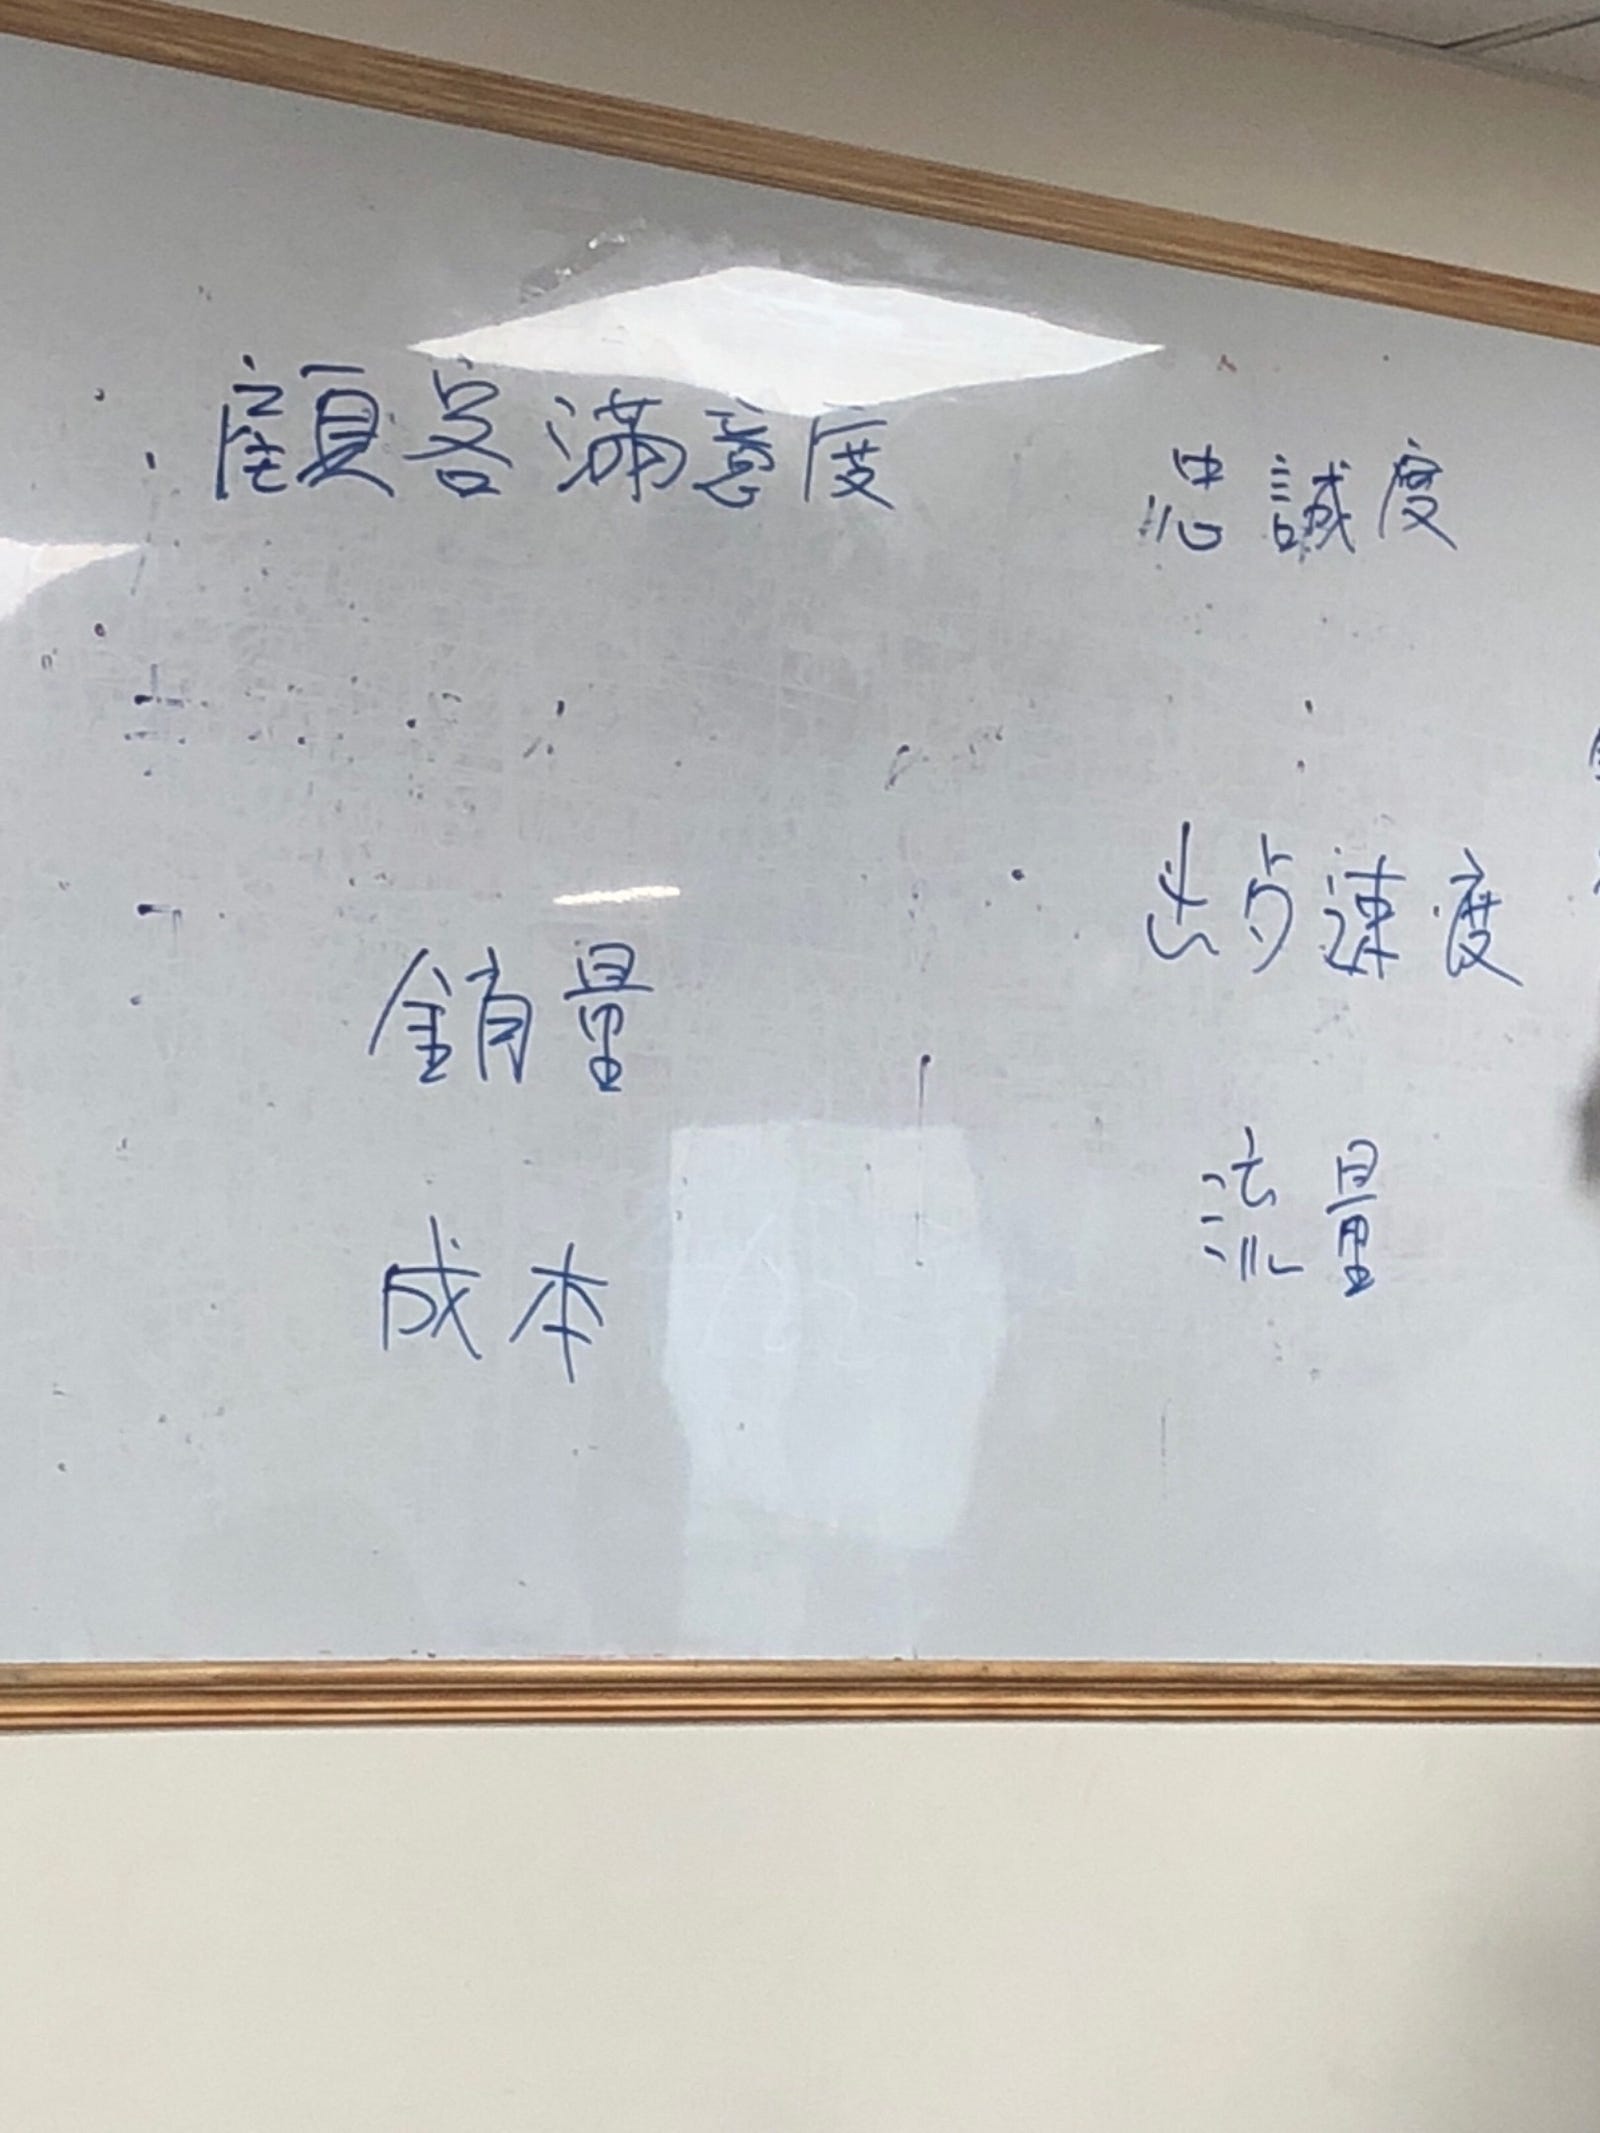 顧客滿意度
忠誠度
出餐速度
銷量
流量
成本